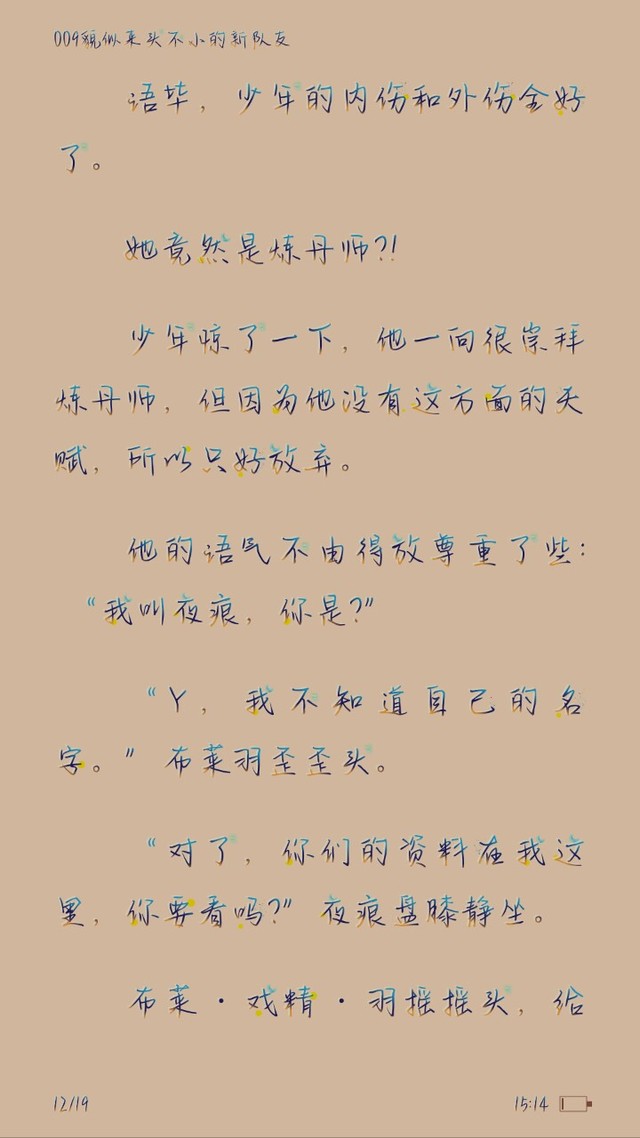 009貌似来头不小的新队友
语毕，少年的内伤和外伤全好
了。
她竟然是炼丹师?!
少年惊了一下，他一向很崇拜
炼丹师，但因为他没有这方面的天
赋，所以只好放弃。
他的语气不由得放尊重了些：
“我叫夜痕，你是?”
“丫，我不知道自己的名
字。”布莱羽歪歪头。
“对了，你们的资料在我这
里，你要看吗?”夜痕盘膝静坐。
布莱·戏精·羽摇摇头，给
12/19
15:14